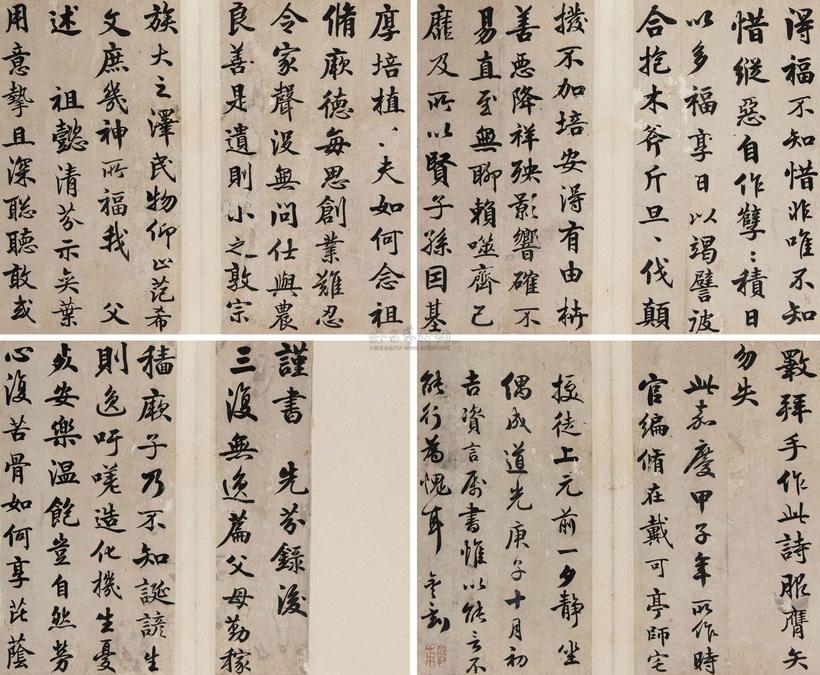 謹書　先芬錄後
三復無逸篇父母勤稼
穡厥子乃不知誕諺生
則逸吁嗟造化機生憂
死安樂溫飽豈自然勞
心復苦骨如何享芘蔭
得福不知惜非唯不知
惜縱惡自作孽〻積日
以多福享日以竭譬彼
合抱木斧斤旦〻伐顛
撥不加培安得有由枿
善惡降祥殃影響確不
易直至無聊賴噬齊已
靡及所以賢子孫因基
厚培植〻夫如何念祖
脩厥德每思創業難忍
令家聲沒無問仕與農
良善是遺則小之敦宗
族大之澤民物仰止范希
文庶幾神所福我　父
述　祖懿清芬示奕葉
用意摯且深聰聽敢或
斁拜手作此詩服膺矢
勿失
此嘉慶甲子年所作時
官編脩在戴可亭師宅
授徒上元前一夕靜坐
偶成道光庚子十月初
吉資言屬書惟以能言不
能行為愧耳